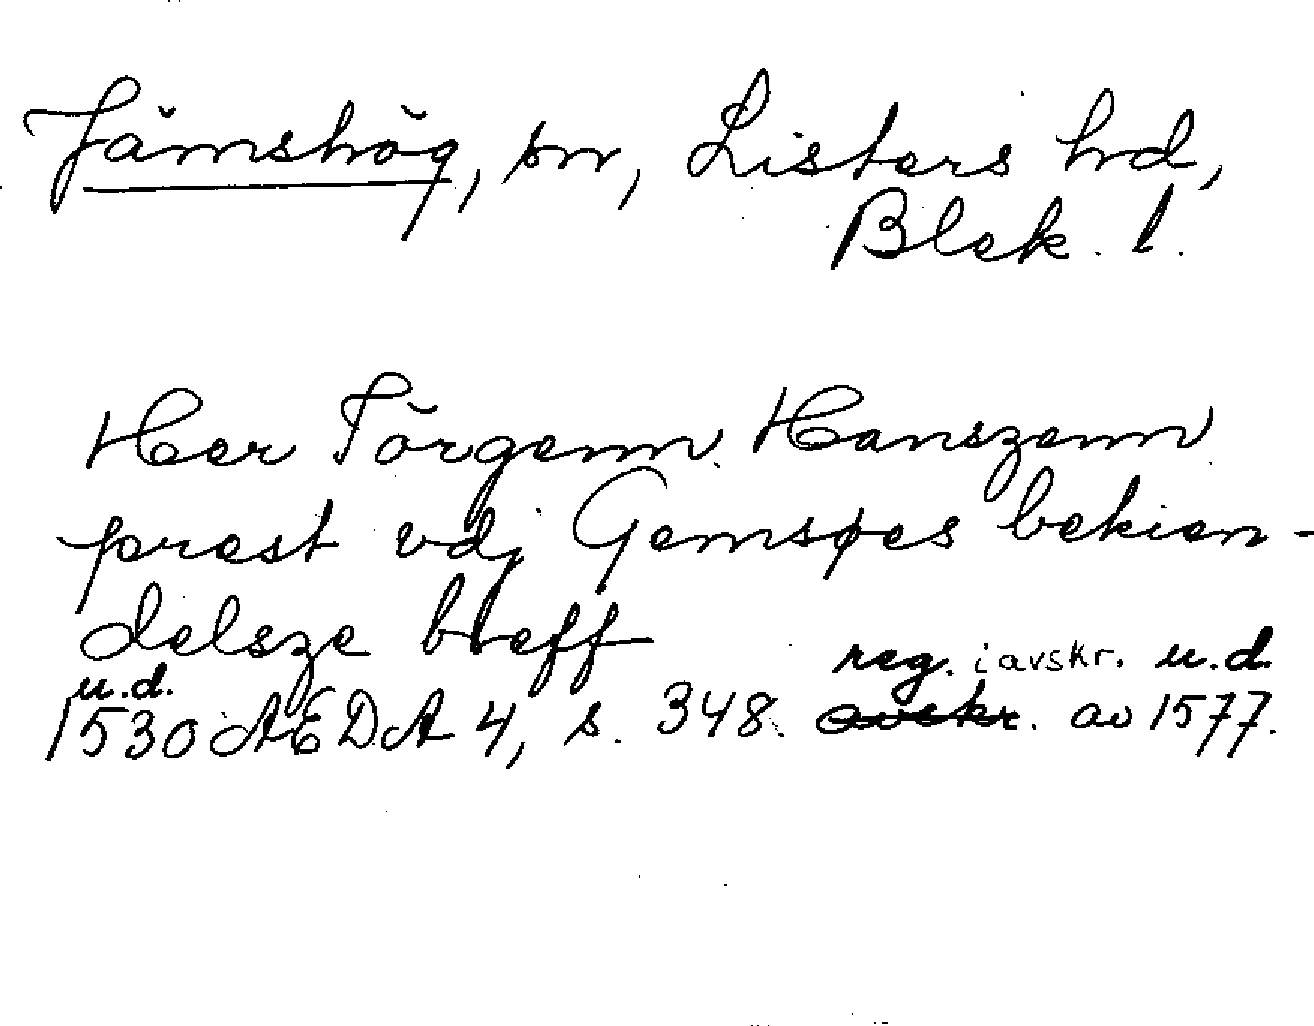 Jämshög, sn, Listers hd,
Blek. l.
Her Jörgenn Hanszenn
prest vdj Gemsøes bekien-
delsze breff
u.d. reg. i avskr. u.d.
1530 ÆDA 4, s. 348. avskr. av 1577.